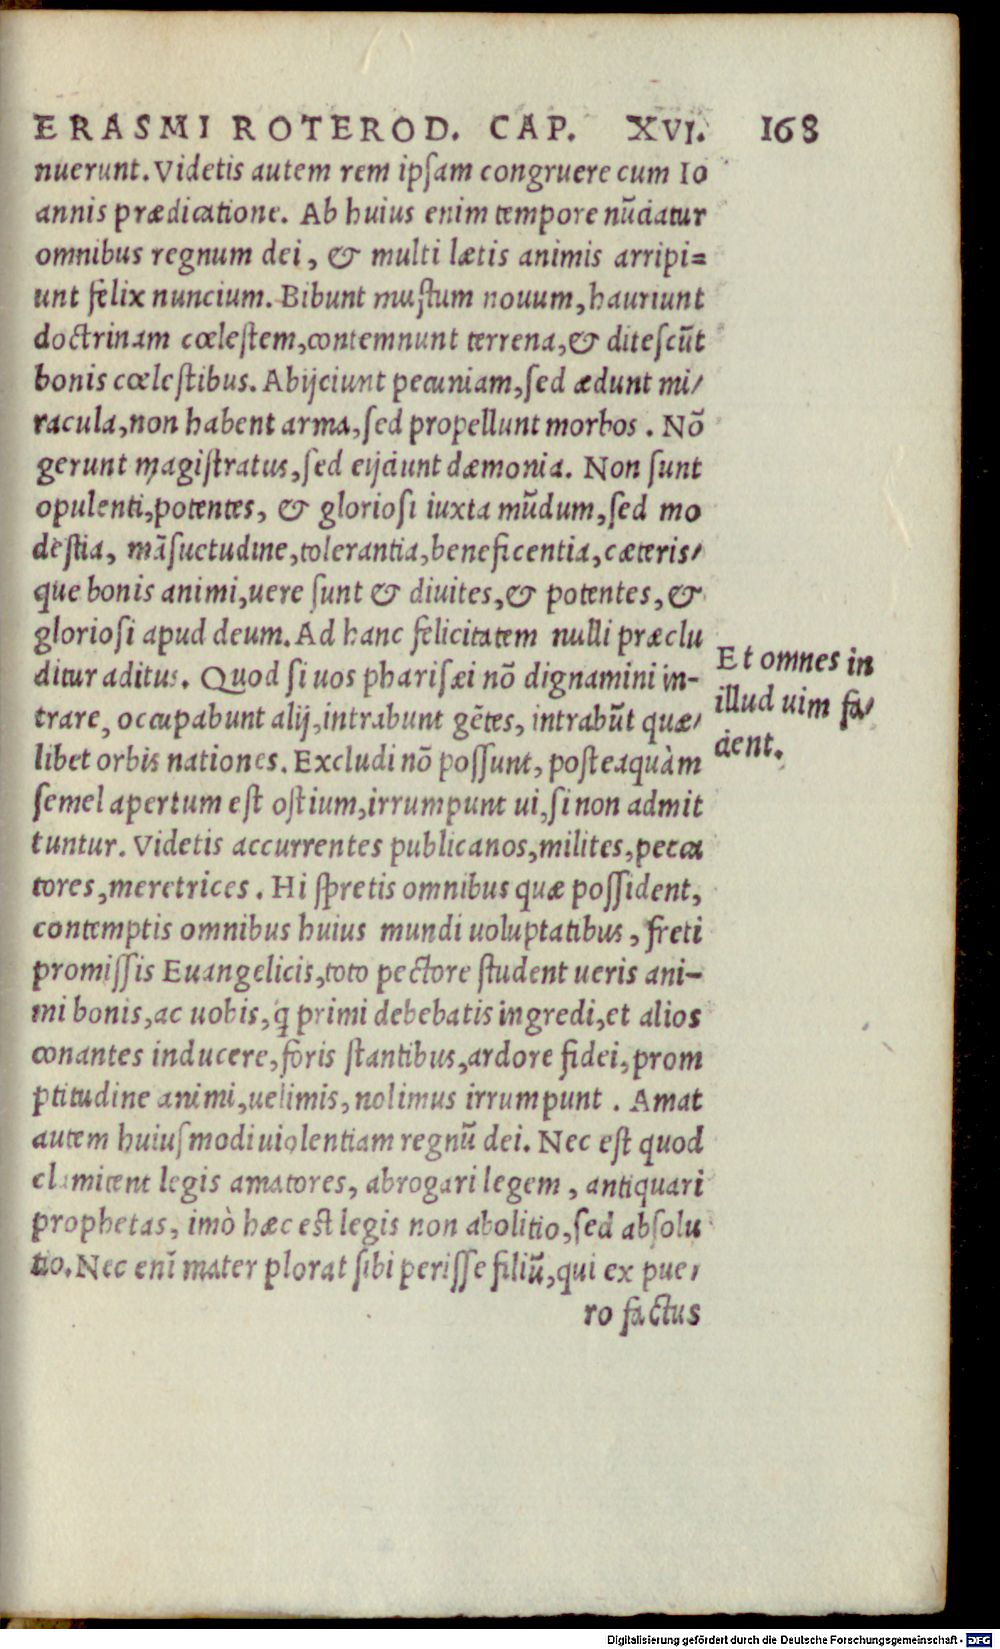 ERASMI ROTEROD. CAP. XVI. 168
nuerunt. Videtis autem rem ipſam congruere cum Io
annis prædicatione. Ab huius enim tempore nũciatur
omnibus regnum dei, & multi lætis animis arripi=
unt felix nuncium. Bibunt muſtum nouum, hauriunt
doctrinam cœleſtem, contemnunt terrena, & diteſcũt
bonis cœleſtibus. Abijciunt pecuniam, ſed ædunt mi/
racula, non habent arma, ſed propellunt morbos. Nõ
gerunt magiſtratus, ſed eijciunt dæmonia. Non ſunt
opulenti, potentes, & glorioſi iuxta mũdum, ſed mo
deſtia, mãſuetudine, tolerantia, beneficentia, cæteris/
que bonis animi, uere ſunt & diuites, & potentes, &
glorioſi apud deum. Ad hanc felicitatem nulli præclu
ditur aditus. Quod ſi uos phariſæi nõ dignamini in-
trare, occupabunt alij, intrabunt gẽtes, intrabũt quæ/
libet orbis nationes. Excludi nõ poſſunt, poſteaquàm
ſemel apertum eſt oſtium, irrumpunt ui, ſi non admit
tuntur. Videtis accurrentes publicanos, milites, pecca
tores, meretrices. Hi ſpretis omnibus quæ poſſident,
contemptis omnibus huius mundi uoluptatibus, freti
promiſſis Euangelicis, toto pectore ſtudent ueris ani-
mi bonis, ac uobis, q̃ primi debebatis ingredi, et alios
conantes inducere, foris ſtantibus, ardore fidei, prom
ptitudine animi, uelimis, nolimus irrumpunt. Amat
autem huiuſmodi uiolentiam regnũ dei. Nec eſt quod
clamitent legis amatores, abrogari legem, antiquari
prophetas, imò hæc eſt legis non abolitio, ſed abſolu
tio. Nec enĩ mater plorat ſibi periſſe filiũ, qui ex pue/
ro factus
Et omnes in
illud uim fa/
cient.
Digitalisierung gefördert durch die Deutsche Forschungsgemeinschaft - DFG